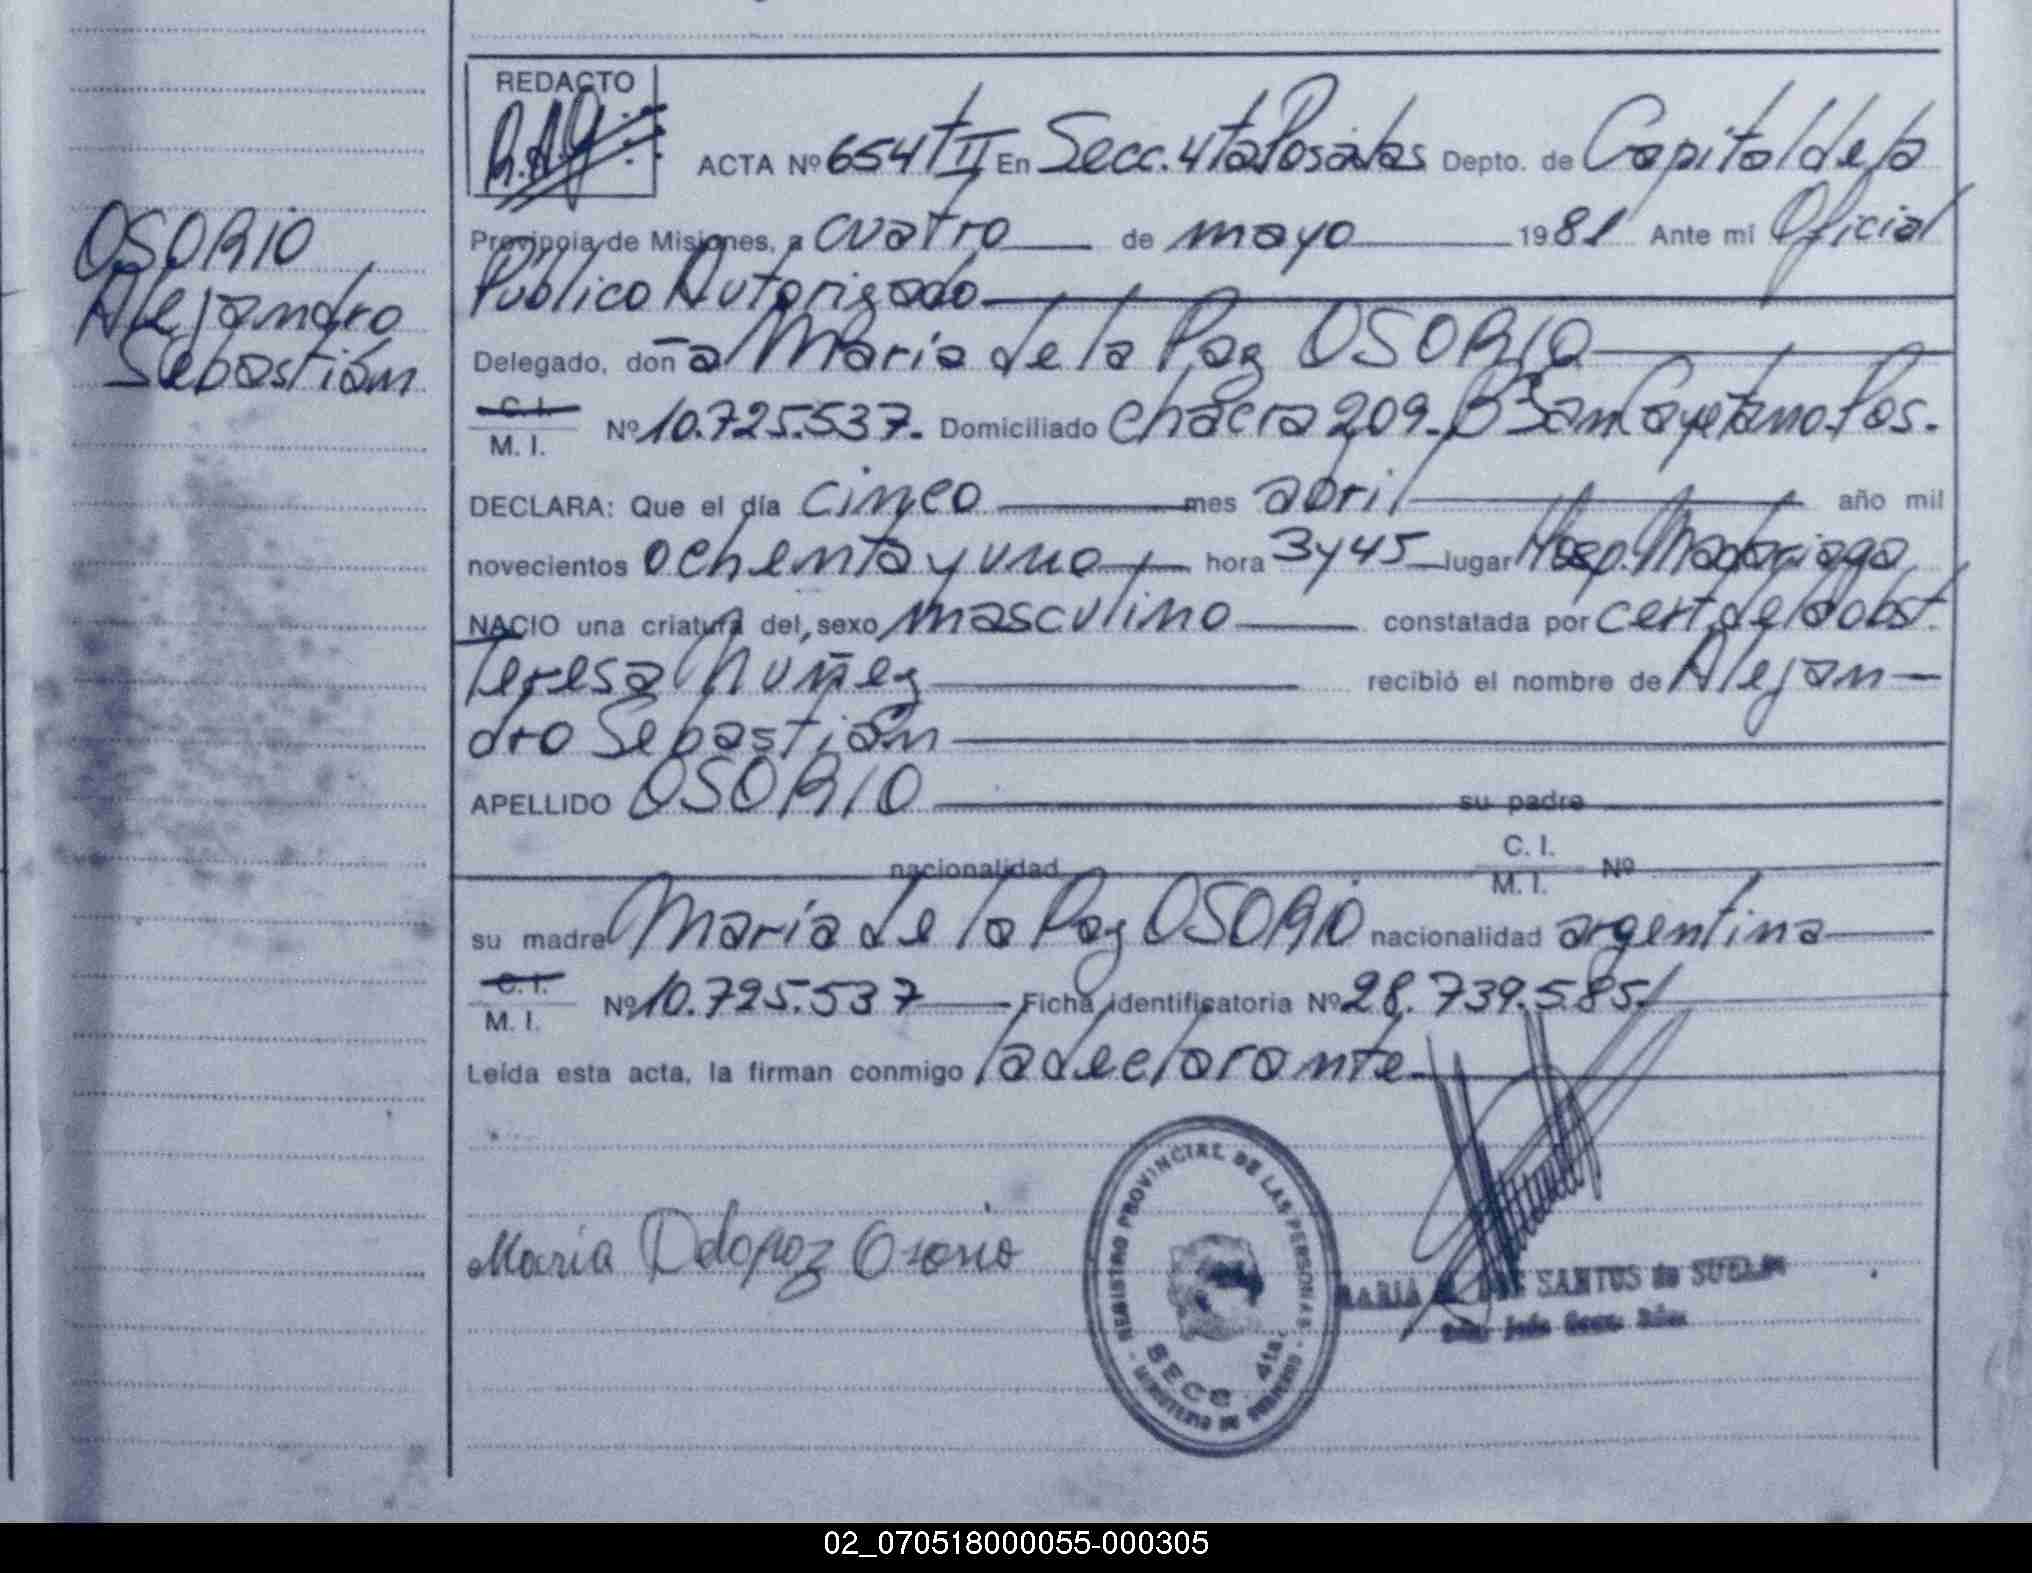 REDACTO
ACTA Nº 654 t II En Secc. 4ta Posadas Depto. de Capital de la
OSORIO
Provincia de Misiones, a cuatro de mayo 1981 Ante mí Oficial
Público Autorizado
Alejandro
Delegado, doña María de la Paz OSORIO
Sebastián
C. I.
M. I. Nº 10.725.537. Domiciliado chacra 209. Bº San Cayetano. Pos.
DECLARA: Que el día cinco mes abril año mil
novecientos ochenta y uno hora 3 y 45 lugar Hosp. Madariaga
NACIO una criatura del sexo masculino constatada por cert. de la obst.
Teresa Nuñez recibió el nombre de Alejan-
dro Sebastián
APELLIDO OSORIO su padre
nacionalidad C. I. Nº
M. I.
su madre María de la Paz OSORIO nacionalidad argentina
C. I.
M. I. Nº 10.725.537 Ficha identificatoria Nº 28.739.585
Leída esta acta, la firman conmigo la declarante
María Delapaz Osorio
REGISTRO PROVINCIAL DE LAS PERSONAS
SECC. 4ta.
MINISTERIO DE GOBIERNO
MARIA DOS SANTOS de SUELDO
02_070518000055-000305